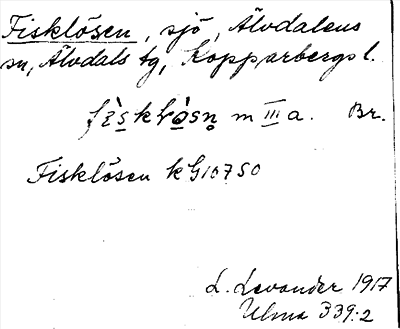 Fisklösen, sjö, Älvdalens
sn, Älvdals tg, Kopparbergs l.
m III a. Br.
Fisklösen k G 1675 0
L. Levander 1917
Ulma 339:2